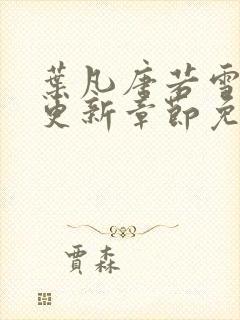 葉凡唐若雪
更新章節免
賈森